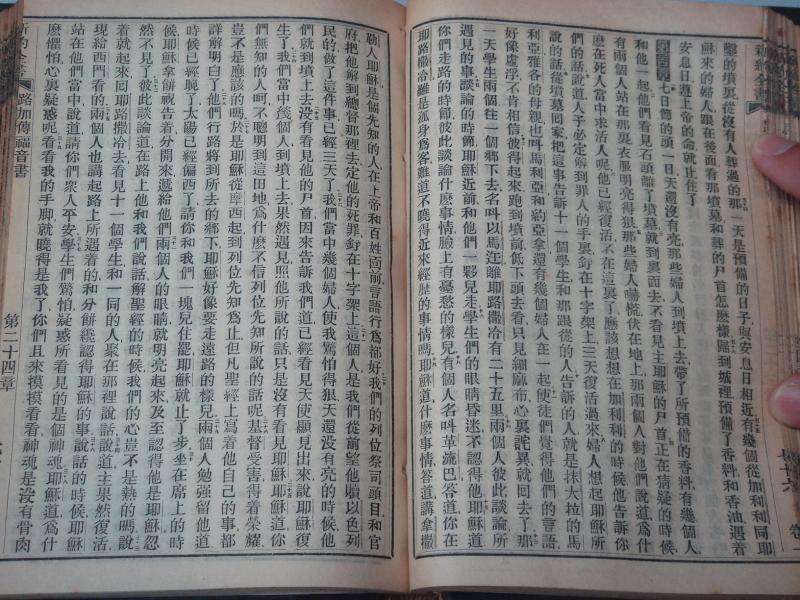 新約全書
鑿的墳裏從沒有人葬過的那一天是預備的日子與安息日相近有幾個從加利利同耶
穌來的婦人跟在後面看那墳墓和葬的尸首怎麽樣歸到城裡預備了香料和香油遇着
安息日遵上帝的命就止住了
七日節的頭一日天還沒有亮那些婦人到墳上去帶了所預備的香料有幾個人
和他一起他們看見石頭離了墳墓就到裏面去不看見主耶穌的尸首正在猜疑的時候
有兩個人站在那裏衣服明亮得狠那些婦人嚇慌伏在地上那兩個人對他們說道爲什
麽在死人當中求活人呢他已經復活不在這裏了應該想想在加利利的時候他告訴你
們的話說道人子必定解到罪人的手裏釘在十字架上三天復活過來婦人想起耶穌所
說的話從墳墓回家把這事告訴十一個學生和那跟從的人告訴的人就是抹大拉的馬
利亞雅各的母親也叫馬利亞和約亞拿還有幾個婦人在一起使徒們覺得他們的言語
好像虛浮不肯相信彼得起來跑到墳前低下頭去看見只見細麻布心裏詫異就回去了那
一天學生兩個往一個鄉下去名叫以馬迕離耶路撒冷有二十五里兩個人彼此談論所
遇見的事談論的時節耶穌近前和他們一夥兒走學生們的眼睛昏迷不認得他耶穌道
你們走路的時節彼此談論什麽事情臉上有憂愁的樣兒有個人名叫革流巴答道你在
耶路撒冷雖是孤身爲客難道不曉得近來經歷的事情嗎耶穌道什麽事情答道講拿撒
勒人耶穌是個先知的人在上帝和百姓面前言語行爲都好我們的列位祭司頭目和官
府把他解到總督那裡去定他的死罪釘在十字架上這個人是我們從前望他贖以色列
民的做了這件事已經三天了我們當中幾個婦人使我驚怕得狠天還沒有亮的時候他
們就到墳上去沒有看見他的尸首因來告訴我們道已經看見天使顯見出來說耶穌復
生了我們當中幾個人到墳上去果然遇見照他所說的話只是沒有看見耶穌耶穌道你
們無知的人呵不聰明到這田地爲什麽不信列位先知所說的話呢基督受害得着榮耀
豈不是應該的嗎於是耶穌從摩西起到列位先知爲止但凡聖經上寫着他自己的事都
詳解明白了他們行路將到所去的鄉下耶穌好像要走遠路的樣兒兩個人勉强留他道
時候已經晚了太陽已經偏西了請你和我們一塊兒住罷耶穌就止了步坐在席上的時
候耶穌拿餅祝告着分開來遞給他們兩個人的眼睛就明亮起來及至認得他是耶穌忽
然不見了彼此談論道在路上他和我們說話解聖經的時候我們的心豈不是熱的嗎說
着就起來回耶路撒冷去看見十一個學生和一同的人聚在那裡說話說道主果然復活
現給西門看的兩個人也講起路上所遇着的和分餅纔認得耶穌的事談話的時候耶穌
站在他們當中說道請你們衆人平安學生們驚怕疑惑所看見的是個神魂耶穌道爲什
麽懼怕心裏疑惑呢看看我的手脚就曉得是我了你們且來摸摸看看神魂是沒有骨肉
新約全書 路加傳福音書 第二十四章